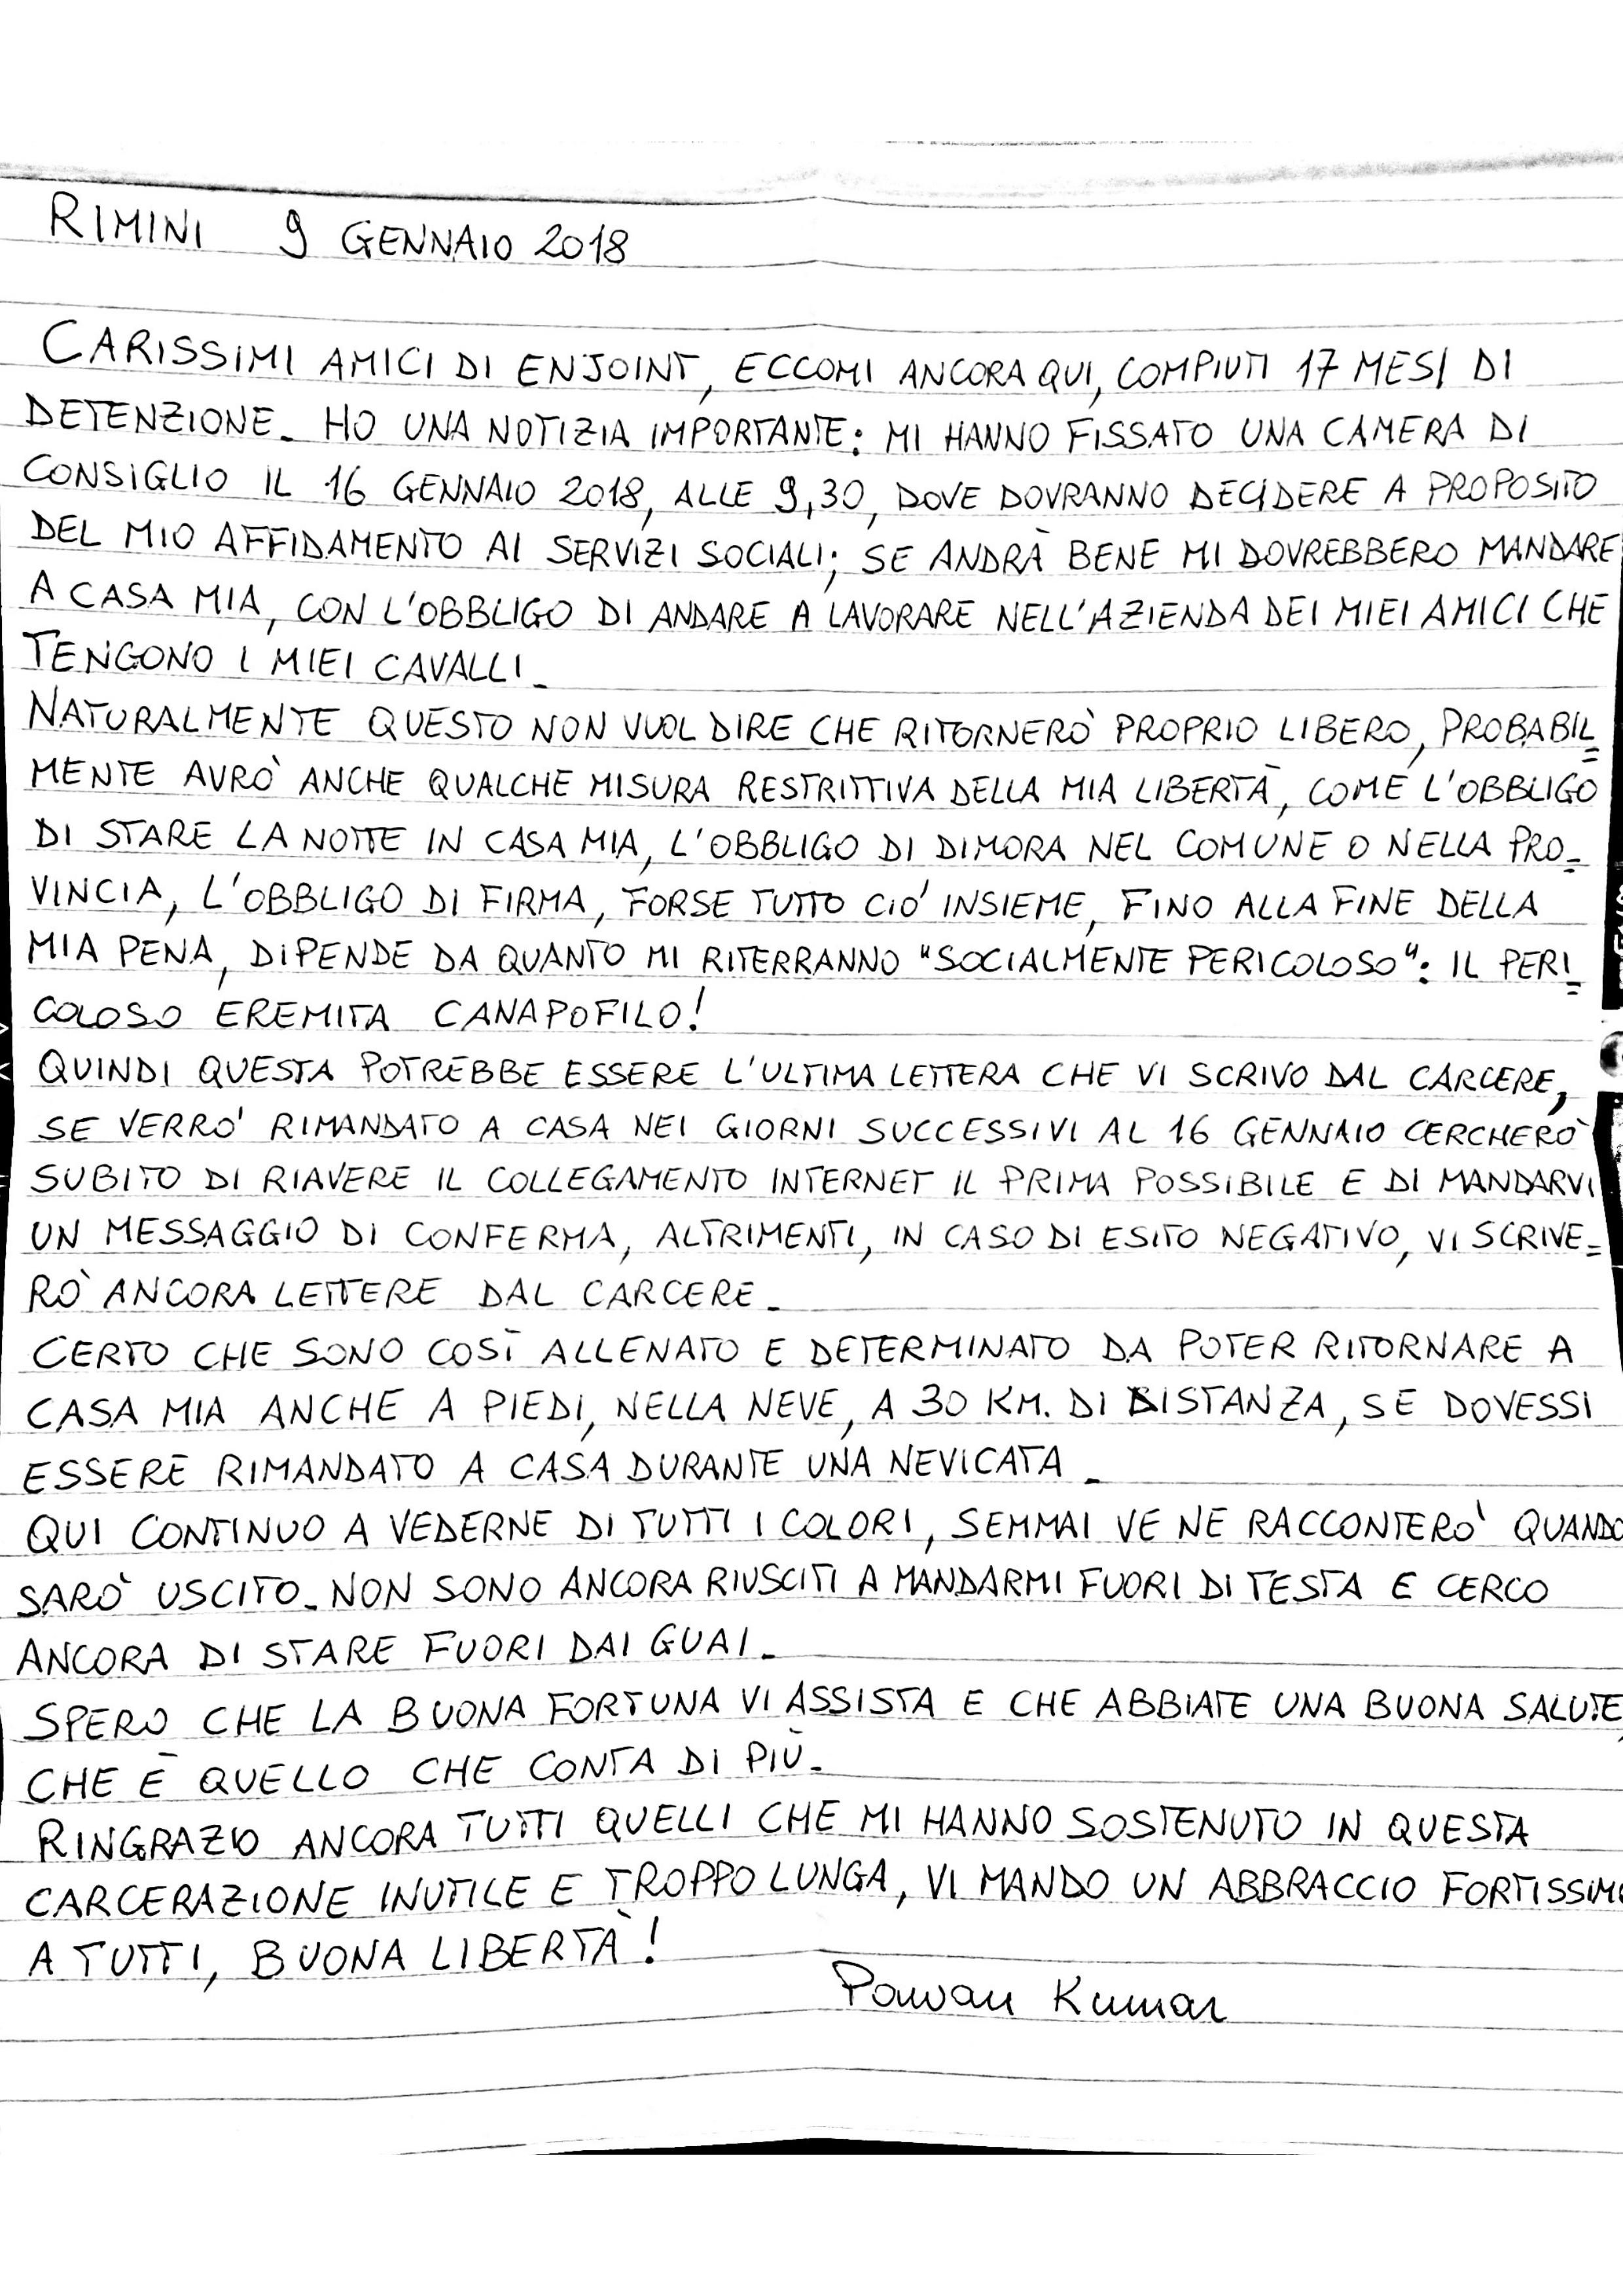 RIMINI 9 GENNAIO 2018
CARISSIMI AMICI DI ENJOINT, ECCOMI ANCORA QUI, COMPIUTI 17 MESI DI
DETENZIONE. HO UNA NOTIZIA IMPORTANTE: MI HANNO FISSATO UNA CAMERA DI
CONSIGLIO IL 16 GENNAIO 2018, ALLE 9,30, DOVE DOVRANNO DECIDERE A PROPOSITO
DEL MIO AFFIDAMENTO AI SERVIZI SOCIALI; SE ANDRÀ BENE MI DOVREBBERO MANDARE
A CASA MIA, CON L'OBBLIGO DI ANDARE A LAVORARE NELL'AZIENDA DEI MIEI AMICI CHE
TENGONO I MIEI CAVALLI.
NATURALMENTE QUESTO NON VUOL DIRE CHE RITORNERÒ PROPRIO LIBERO, PROBABIL=
MENTE AVRÒ ANCHE QUALCHE MISURA RESTRITTIVA DELLA MIA LIBERTÀ, COME L'OBBLIGO
DI STARE LA NOTTE IN CASA MIA, L'OBBLIGO DI DIMORA NEL COMUNE O NELLA PRO=
VINCIA, L'OBBLIGO DI FIRMA, FORSE TUTTO CIÒ INSIEME, FINO ALLA FINE DELLA
MIA PENA, DIPENDE DA QUANTO MI RITERRANNO "SOCIALMENTE PERICOLOSO": IL PERI=
COLOSO EREMITA CANAPOFILO!
QUINDI QUESTA POTREBBE ESSERE L'ULTIMA LETTERA CHE VI SCRIVO DAL CARCERE,
SE VERRÒ RIMANDATO A CASA NEI GIORNI SUCCESSIVI AL 16 GENNAIO CERCHERÒ
SUBITO DI RIAVERE IL COLLEGAMENTO INTERNET IL PRIMA POSSIBILE E DI MANDARVI
UN MESSAGGIO DI CONFERMA, ALTRIMENTI, IN CASO DI ESITO NEGATIVO, VI SCRIVE=
RÒ ANCORA LETTERE DAL CARCERE.
CERTO CHE SONO COSÌ ALLENATO E DETERMINATO DA POTER RITORNARE A
CASA MIA ANCHE A PIEDI, NELLA NEVE, A 30 KM. DI DISTANZA, SE DOVESSI
ESSERE RIMANDATO A CASA DURANTE UNA NEVICATA.
QUI CONTINUO A VEDERNE DI TUTTI I COLORI, SEMMAI VE NE RACCONTERÒ QUANDO
SARÒ USCITO. NON SONO ANCORA RIUSCITI A MANDARMI FUORI DI TESTA E CERCO
ANCORA DI STARE FUORI DAI GUAI.
SPERO CHE LA BUONA FORTUNA VI ASSISTA E CHE ABBIATE UNA BUONA SALUTE,
CHE È QUELLO CHE CONTA DI PIÙ.
RINGRAZIO ANCORA TUTTI QUELLI CHE MI HANNO SOSTENUTO IN QUESTA
CARCERAZIONE INUTILE E TROPPO LUNGA, VI MANDO UN ABBRACCIO FORTISSIMO
A TUTTI, BUONA LIBERTÀ!
Pawan Kumar